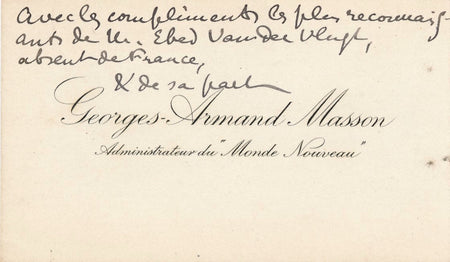 Avec les compliments les plus reconnaiss-
ants de M. Ebed Van der Vlugt,
absent de France,
& de sa part
Georges-Armand Masson
Administrateur du "Monde Nouveau"